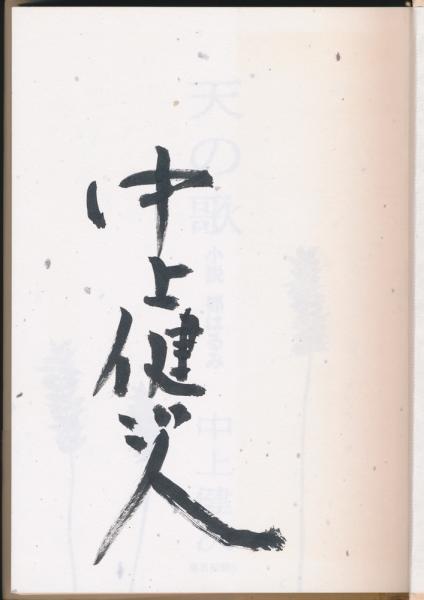 中上健次
天の歌
小説 都はるみ
中上健次